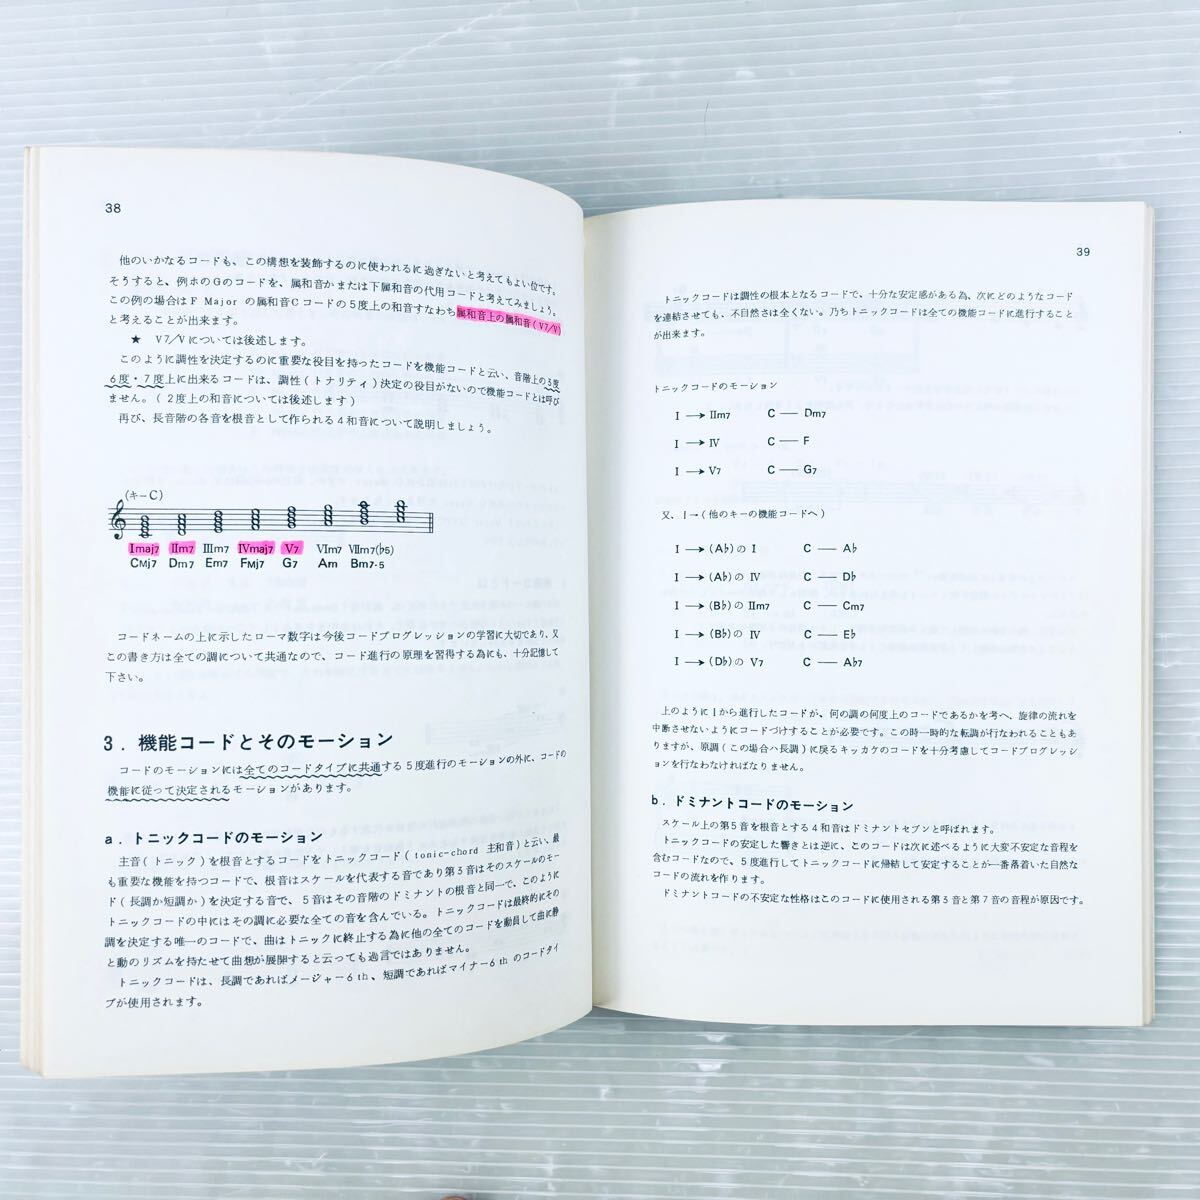 38
他のいかなるコードも、この構想を装飾するのに使われるに過ぎないと考えてもよい位です。
そうすると、例ホのGのコードを、属和音かまたは下属和音の代用コードと考えてみましょう。
この例の場合はF Majorの属和音Cコードの5度上の和音すなわち属和音上の属和音(V7/V)
と考えることが出来ます。
★ V7/Vについては後述します。
このように調性を決定するのに重要な役目を持ったコードを機能コードと云い、音階上の3度
6度・7度上に出来るコードは、調性(トナリティ)決定の役目がないので機能コードとは呼び
ません。(2度上の和音については後述します)
再び、長音階の各音を根音として作られる4和音について説明しましょう。
(キーC)
Imaj7 IIm7 IIIm7 IVmaj7 V7 VIm7 VIIm7(♭5)
CMj7 Dm7 Em7 FMj7 G7 Am Bm7-5
コードネームの上に示したローマ数字は今後コードプログレッションの学習に大切であり、又
この書き方は全ての調について共通なので、コード進行の原理を習得する為にも、十分記憶して
下さい。
3. 機能コードとそのモーション
コードのモーションには全てのコードタイプに共通する5度進行のモーションの外に、コードの
機能に従って決定されるモーションがあります。
a. トニックコードのモーション
主音(トニック)を根音とするコードをトニックコード(tonic-chord 主和音)と云い、最
も重要な機能を持つコードで、根音はスケールを代表する音であり第3音はそのスケールのモー
ド(長調か短調か)を決定する音で、5音はその音階のドミナントの根音と同一で、このように
トニックコードの中にはその調に必要な全ての音を含んでいる。トニックコードは最終的にその
調を決定する唯一のコードで、曲はトニックに終止する為に他の全てのコードを動員して曲に静
と動のリズムを持たせて曲想が展開すると云っても過言ではありません。
トニックコードは、長調であればメージャー6th、短調であればマイナー6thのコードタイ
プが使用されます。
39
トニックコードは調性の根本となるコードで、十分な安定感がある為、次にどのようなコード
を連結させても、不自然さは全くない。乃ちトニックコードは全ての機能コードに進行すること
が出来ます。
トニックコードのモーション
I → IIm7 C — Dm7
I → IV C — F
I → V7 C — G7
又、I→(他のキーの機能コードへ)
I → (A♭)の I C — A♭
I → (A♭)の IV C — D♭
I → (B♭)の IIm7 C — Cm7
I → (B♭)の IV C — E♭
I → (D♭)の V7 C — A♭7
上のようにIから進行したコードが、何の調の何度上のコードであるかを考へ、旋律の流れを
中断させないようにコードづけすることが必要です。この時一時的な転調が行なわれることもあ
りますが、原調(この場合ハ長調)に戻るキッカケのコードを十分考慮してコードプログレッシ
ョンを行なわなければなりません。
b. ドミナントコードのモーション
スケール上の第5音を根音とする4和音はドミナントセブンと呼ばれます。
トニックコードの安定した響きとは逆に、このコードは次に述べるように大変不安定な音程を
含むコードなので、5度進行してトニックコードに帰結して安定することが一番落着いた自然な
コードの流れを作ります。
ドミナントコードの不安定な性格はこのコードに使用される第3音と第7音の音程が原因です。